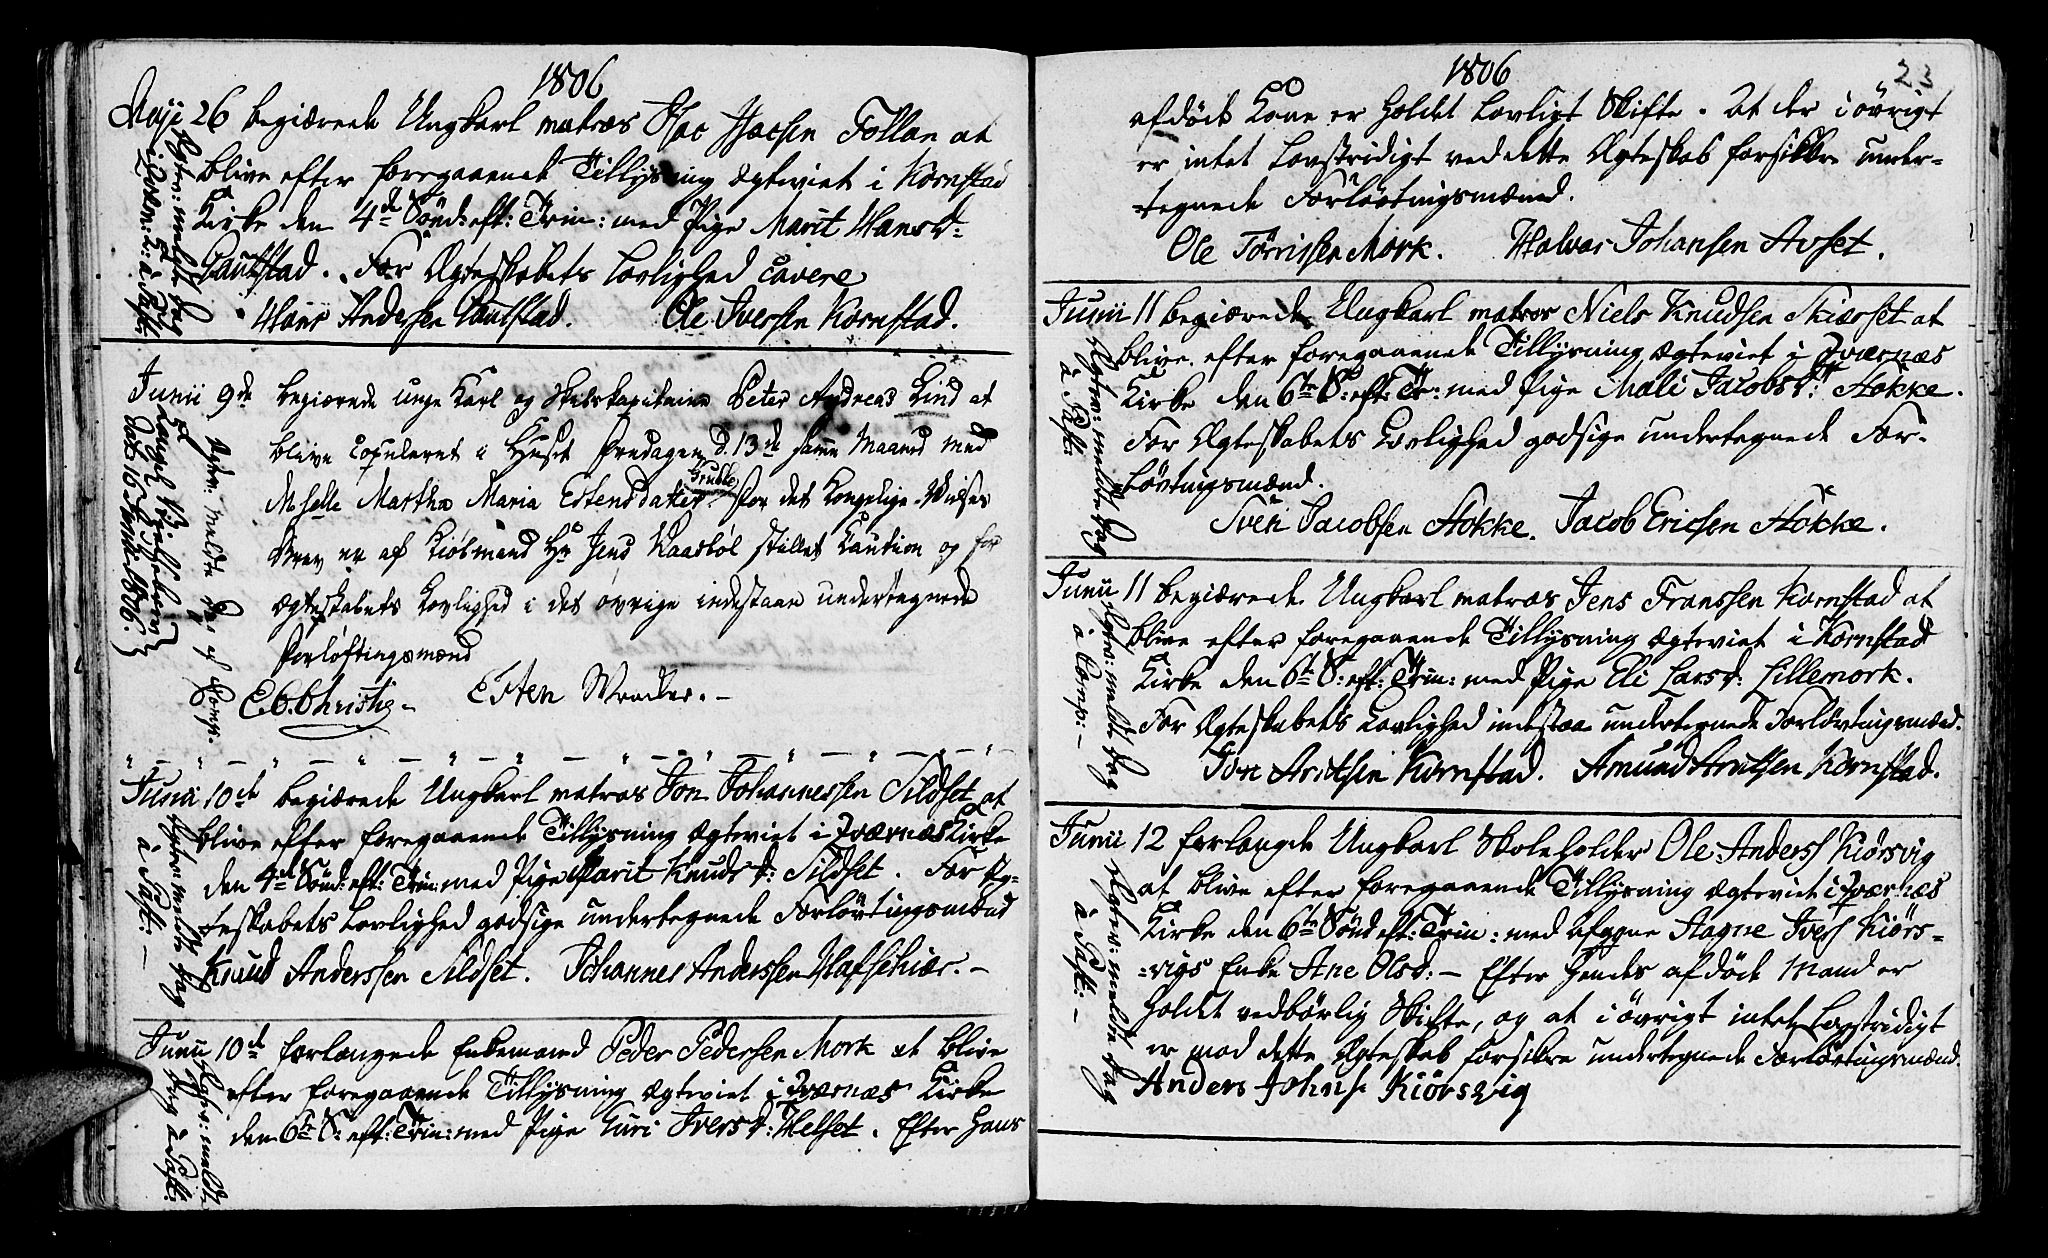 1806
Maji 26 begiærede Ungkarl matros Isac Isacsen Tollan at
blive efter foregaaende Tillysning ægteviet i Kornstad
Kirke den 4de Sønd: eft: Trin: med Pige Marit Hansd:
Gautstad. For Ægteskabets Lovlighed cavere
Hans Andersen Gautstad. Ole Iversen Kornstad.
Junii 9de begiærede unge Karl og Skibskapitaine Peter Andreas Lind at
blive copuleret i Huset Fredagen d. 13de samme Maaned med
Mselle Martha Maria Estensdatter Gruble. For det kongelige
Brev er af Kiøbmand Hr Jens Kaasbøl stillet Caution og for
Ægteskabets Lovlighed i det øvrige indestaae undertegnede
Forløftingsmænd
E. C. Christie – Esten –
Junii 10de begiærede Ungkarl matros Jon Johannessen Sildset at
blive efter foregaaende Tillysning ægteviet i Qværnæs Kirke
den 4de Sønd: eft: Trin: med Pige Marit Knudsd: Sildset. For Æg-
teskabets Lovlighed godsige undertegnede Forløvtingsmænd
Knud Anderssen Sildset. Johannes Anderssen Hafschiær. –
Junii 10de forlangede Enkemand Peder Pedersen Mork at blive
efter foregaaende Tillysning ægteviet i Qværnæs Kirke
den 6te S: eft: Trin: med Pige Guri Iversd: Helset. Efter hans
1806
23
afdøde Kone er holdet lovligt Skifte. At der i øvrigt
er intet Lovstridigt ved dette Ægteskab forsikkre under-
-tegnede Forløvtingsmænd.
Ole Tørrissen Mork. Halvor Johansen Avset.
Junii 11 begiærede Ungkarl matros Niels Knudsen Skiærset at
blive efter foregaaende Tillysning ægteviet i Qværnæs
Kirke den 6te S: eft: Tr: med Pige Mali Jacobsd: Stokke.
For Ægteskabets Lovlighed godsige undertegnede For-
-løvtingsmænd.
Sven Jacobsen Stokke. Jacob Ericsen Stokke.
Junii 11 begiærede Ungkarl matros Jens Franssen Kornstad at
blive efter foregaaende Tillysning ægteviet i Kornstad
Kirke den 6te S: eft: Trin: med Pige Eli Larsd: Lillemork.
For Ægteskabets Lovlighed indestaa undertegnede Forløvtingsmænd.
Jon Arntsen Kornstad. Amund Arntsen Kornstad.
Junii 12 forlangede Ungkarl Skoleholder Ole Anderss Kiørsvig
at blive efter foregaaende Tillysning ægteviet i Qværnæs
Kirke den 6te Sønd eft: Trin: med afgangne Aagne Ivers Kiørs-
-vigs Enke Ane Olsd: – Efter hendes afdøde Mand er
holdet vedbørlig Skifte, og at i øvrigt intet Lovstridigt
er mod dette Ægteskab forsikre undertegnede Forløvtingsmænd.
Anders Johns: Kiørsvig